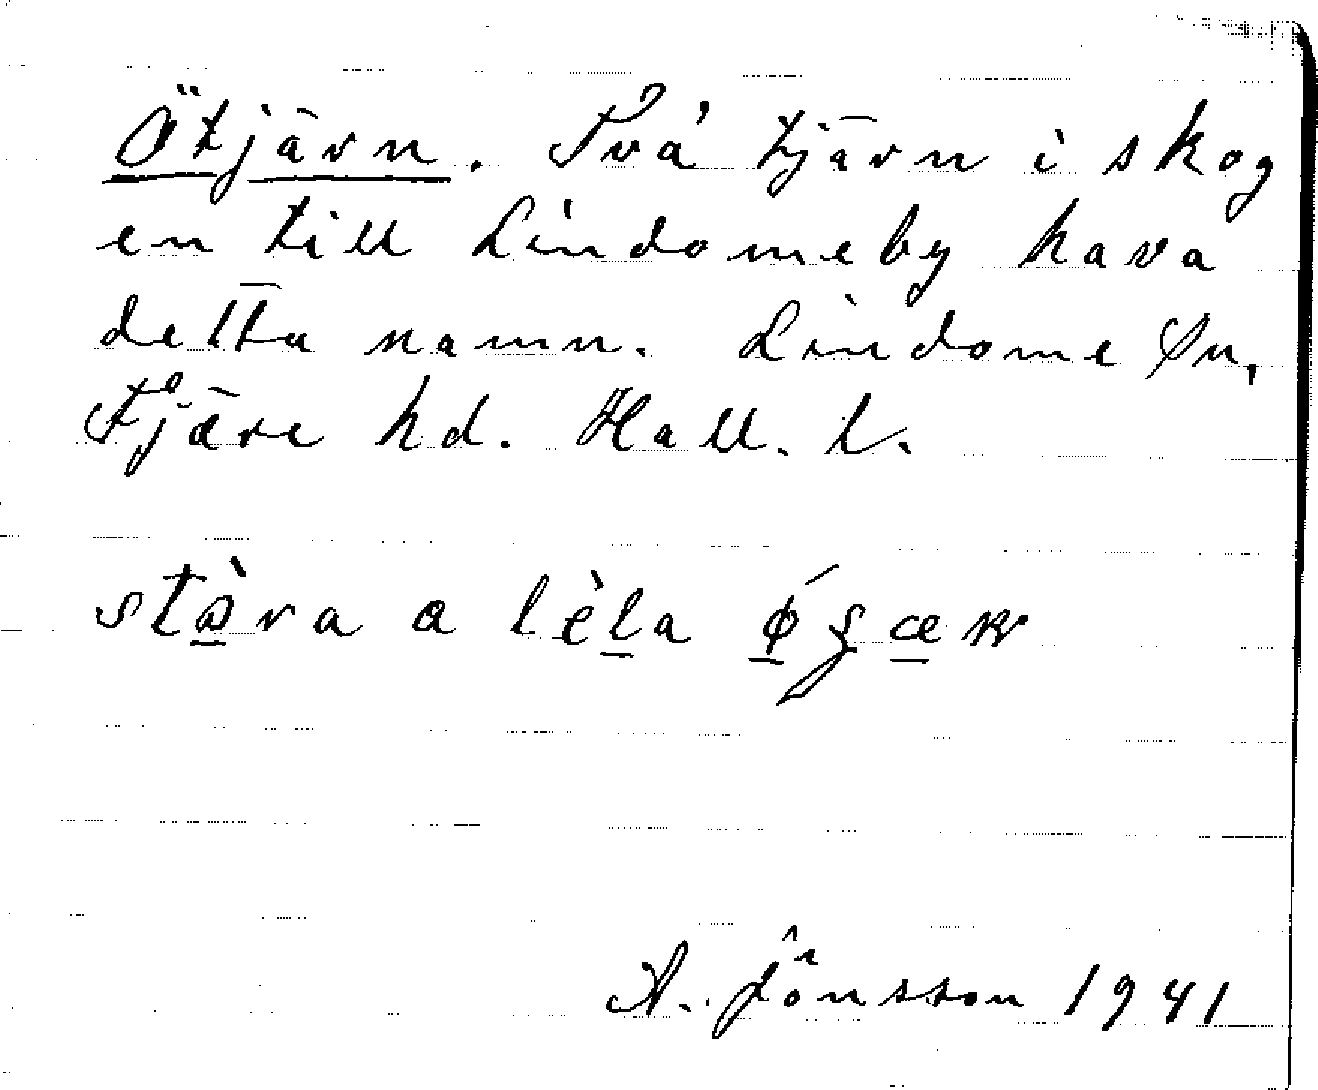 Ötjärn. Två tjärn i skog
en till Lindomeby hava
detta namn. Lindome sn,
Fjäre hd. Hall. l.
stòra a lèla
A. Jônsson 1941